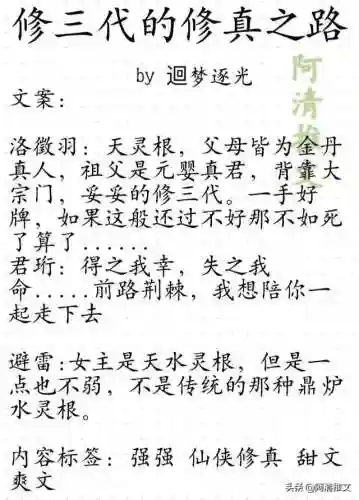 修三代的修真之路
by 迴梦逐光
文案：
洛徵羽：天灵根，父母皆为金丹
真人，祖父是元婴真君，背靠大
宗门，妥妥的修三代。一手好
牌，如果这般还过不好那不如死
了算了......
君珩：得之我幸，失之我
命.....前路荆棘，我想陪你一
起走下去
避雷:女主是天水灵根，但是一
点也不弱，不是传统的那种鼎炉
水灵根。
内容标签：强强 仙侠修真 甜文
爽文
阿清推文
头条@阿清推文